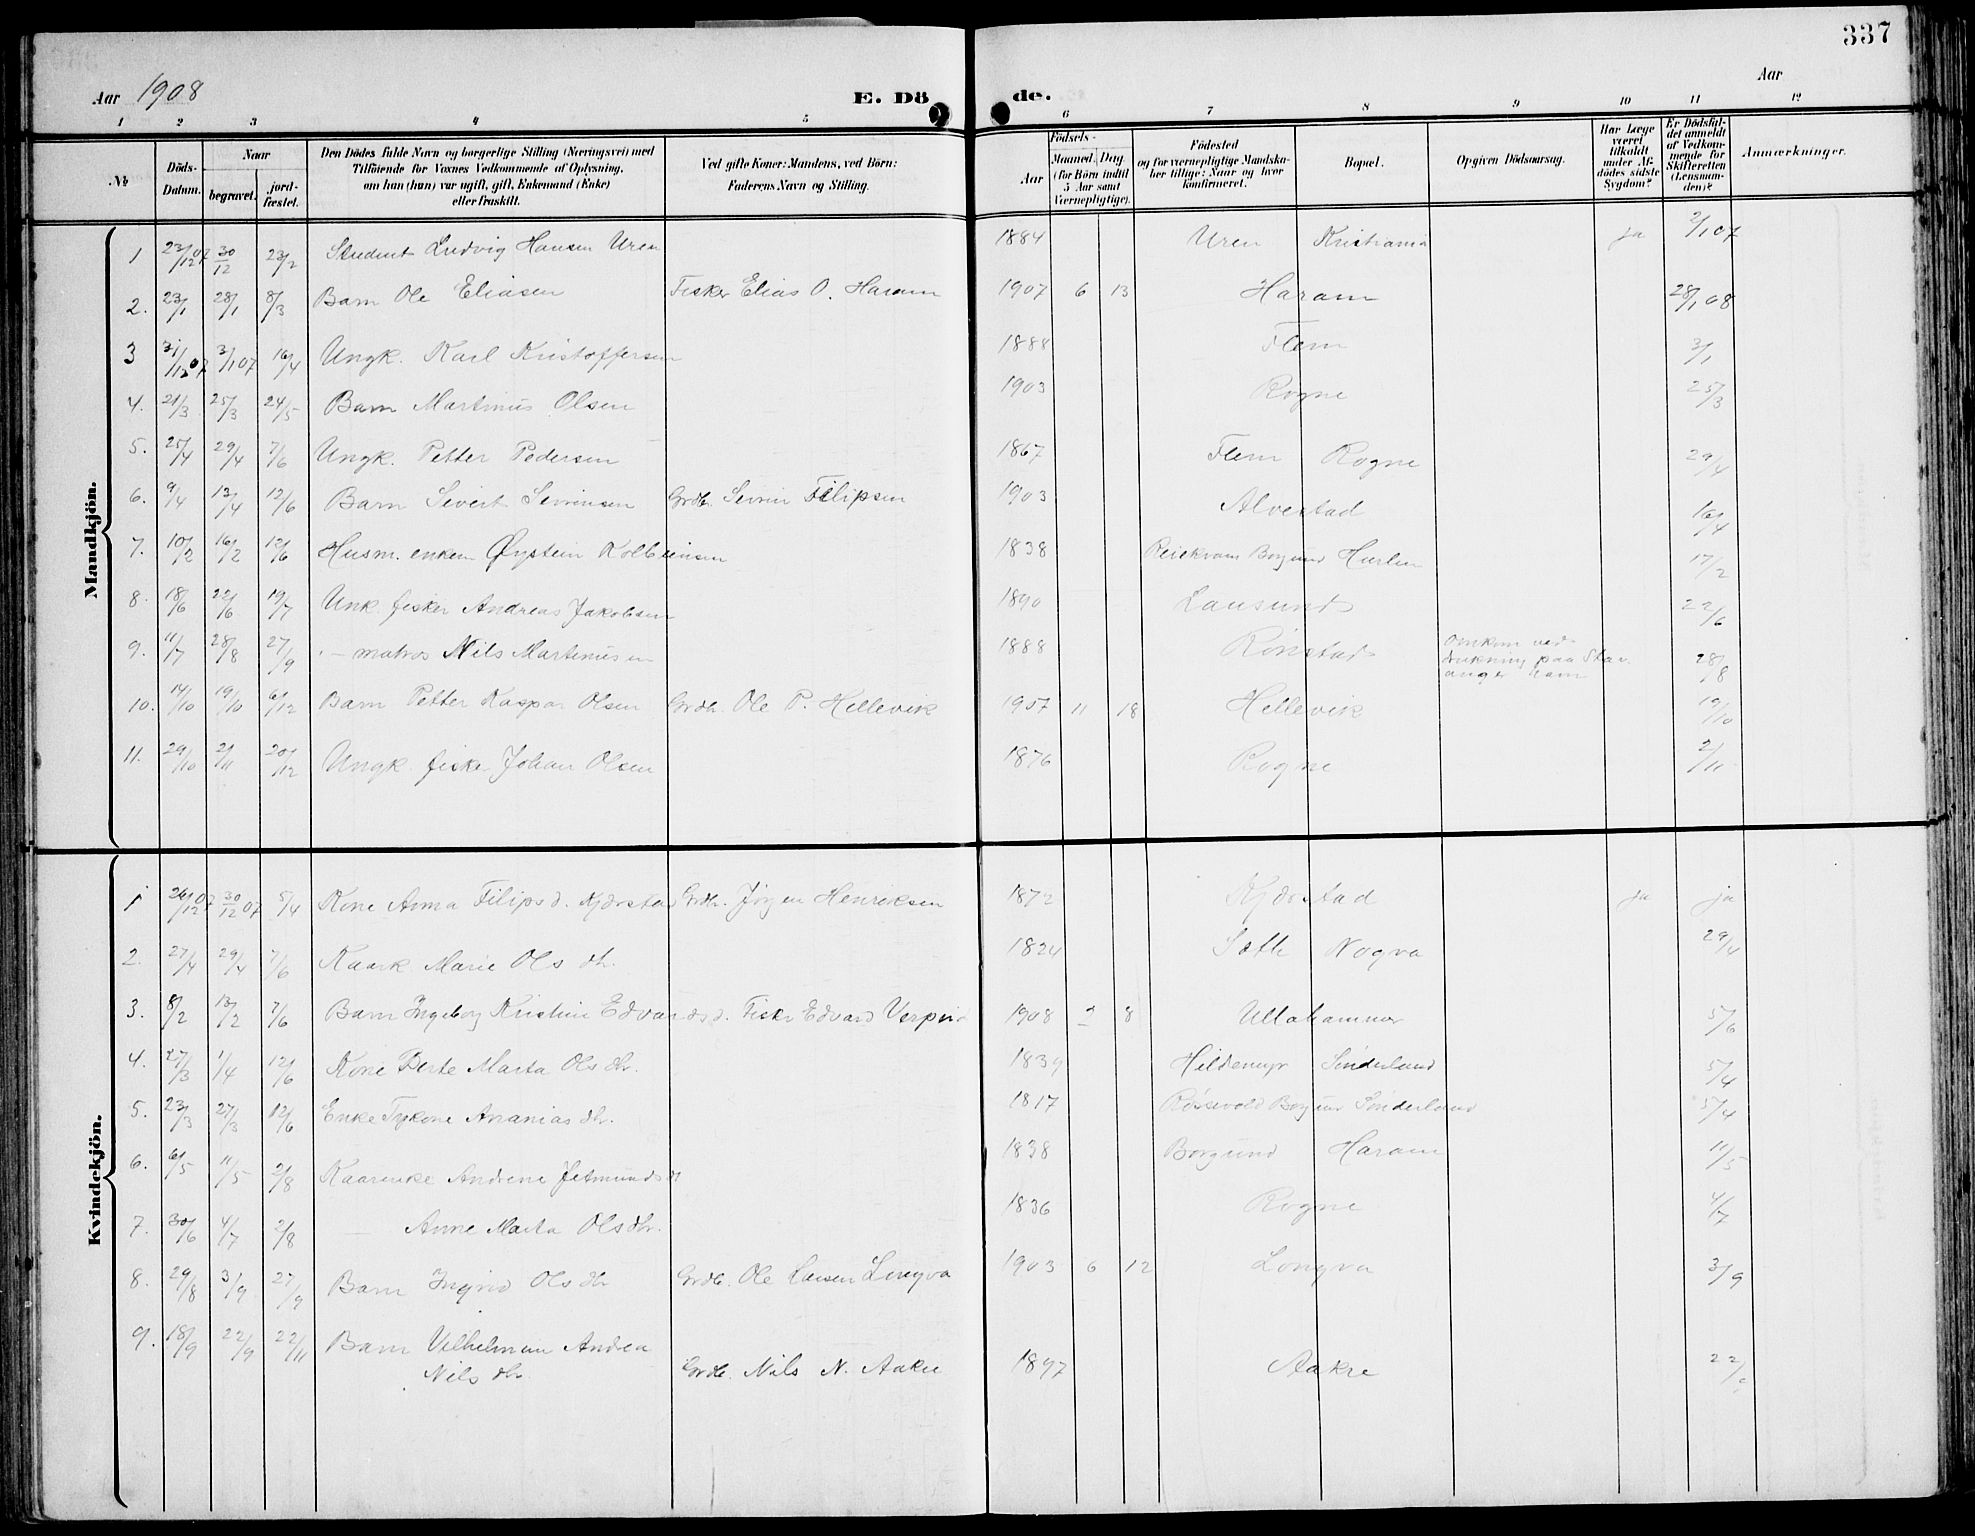 337
Aar 1908 E. Dö de. Aar
1 2 3 4 5 6 7 8 9 10 11 12
№
Döds-Datum.
Naar begravet. jord-fæstet.
Den Dödes fulde Navn og borgerlige Stilling (Næringsvei) med
Tilföiende for Voxnes Vedkommende af Oplysning,
om han (hun) var ugift, gift, Enkemand (Enke)
eller fraskilt.
Ved gifte Koner: Mandens, ved Börn:
Faderens Navn og Stilling.
Födsels-
Aar Maaned. Dag.
(for Börn indtil 5 Aar samt Værnepligtige).
Födested
og for værnepligtige Mandska-
ber tillige: Naar og hvor
konfirmeret.
Bopæl.
Opgiven Dödsaarsag.
Har Læge været tilkaldt under Af-dödes sidste Sygdom?
Er Dödsfal-det anmeldt af Vedkom-mende for Skifteretten (Lensman-den)?
Anmærkninger.
Mandkjön.
1 23/12 07 30/12 23/2 Student Ludvig Hansen Uren 1884 Uren Kristiania ja 2/1 07
2. 23/1 28/1 8/3 Barn Ole Eliasen Fisker Elias O. Haram 1907 6 13 Haram 28/1 08
3 31/12 07 3/1 07 16/4 Ungk. Karl Kristoffersen 1888 Flem 3/1
4. 21/3 25/3 24/5 Barn Martinus Olsen 1903 Rogne 25/3
5. 25/4 29/4 7/6 Ungk. Petter Pedersen 1867 Flem Rogne 29/4
6. 9/4 13/4 12/6 Barn Sivert Sevrinsen Grdb. Sevrin Filipsen 1903 Alvestad 16/4
7. 10/2 16/2 12/6 Husm. enkem Øystein Kolbeinsen 1838 Borgund 17/2
8. 18/6 22/6 19/7 Unk. fisker Andreas Jakobsen 1890 Lausund 22/6
9. 11/7 28/8 27/9 - matros Nils Martinusen 1888 Rønstad Omkom ved
drukning paa Stav-
anger havn 28/8
10. 14/10 19/10 6/12 Barn Petter Kaspar Olsen Grdb. Ole P. Hellevik 1907 11 18 Hellevik 19/10
11. 29/10 2/11 20/12 Ungk. fisker Johan Olsen 1876 Rogne 2/11
Kvindekjön.
1 26/12 07 30/12 07 5/4 Kone Anna Filipsd. Kjærstad Grdb. Jørgen Henriksen 1872 Kjærstad ja ja
2. 27/4 29/4 7/6 Kaark. Marie Olsdtr. 1824 Sæth Nogva 29/4
3. 8/2 13/2 7/6 Barn Ingeborg Kristine Edvardsd. Fisker Edvard 1908 2 8 Ullahammar 5/6
4. 27/3 1/4 12/6 Kone Berte Marta Olsdtr. 1839 Hildemyr Sønderland 5/4
5. 23/3 27/3 12/6 Enke Ananiasdtr. 1817 Røssevold Borgund Sønderland 5/4
6. 6/5 11/5 2/8 Kaarenke Andrine Jetmundsd 1838 Borgund Haram 11/5
7. 30/6 4/7 2/8 — Anne Marta Olsdtr. 1836 Rogne 4/7
8. 29/8 3/9 27/9 Barn Ingrid Olsdtr Grdb. Ole Larsen Longva 1903 6 12 Longva 3/9
9. 18/9 22/9 22/11 Barn Vilhelmine Andrea
Nilsdtr. Grdb. Nils N. Aakre 1897 Aakre 22/9